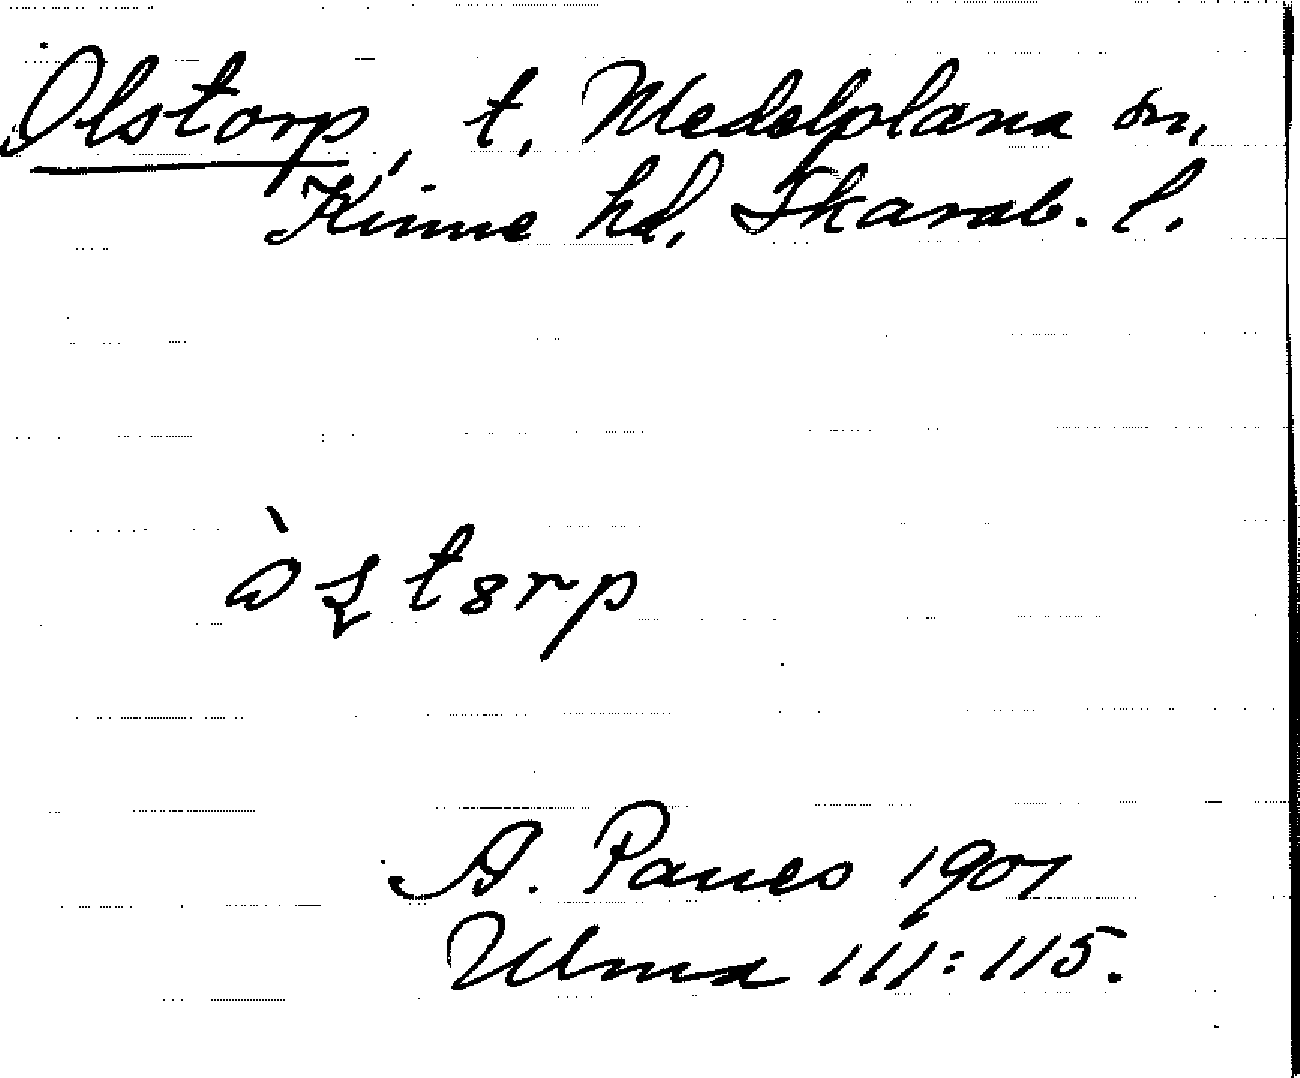 Olstorp, t. Medelplana sn,
Kinne hd, Skarab. l.
A. Paues 1907
Ulma 111:115.